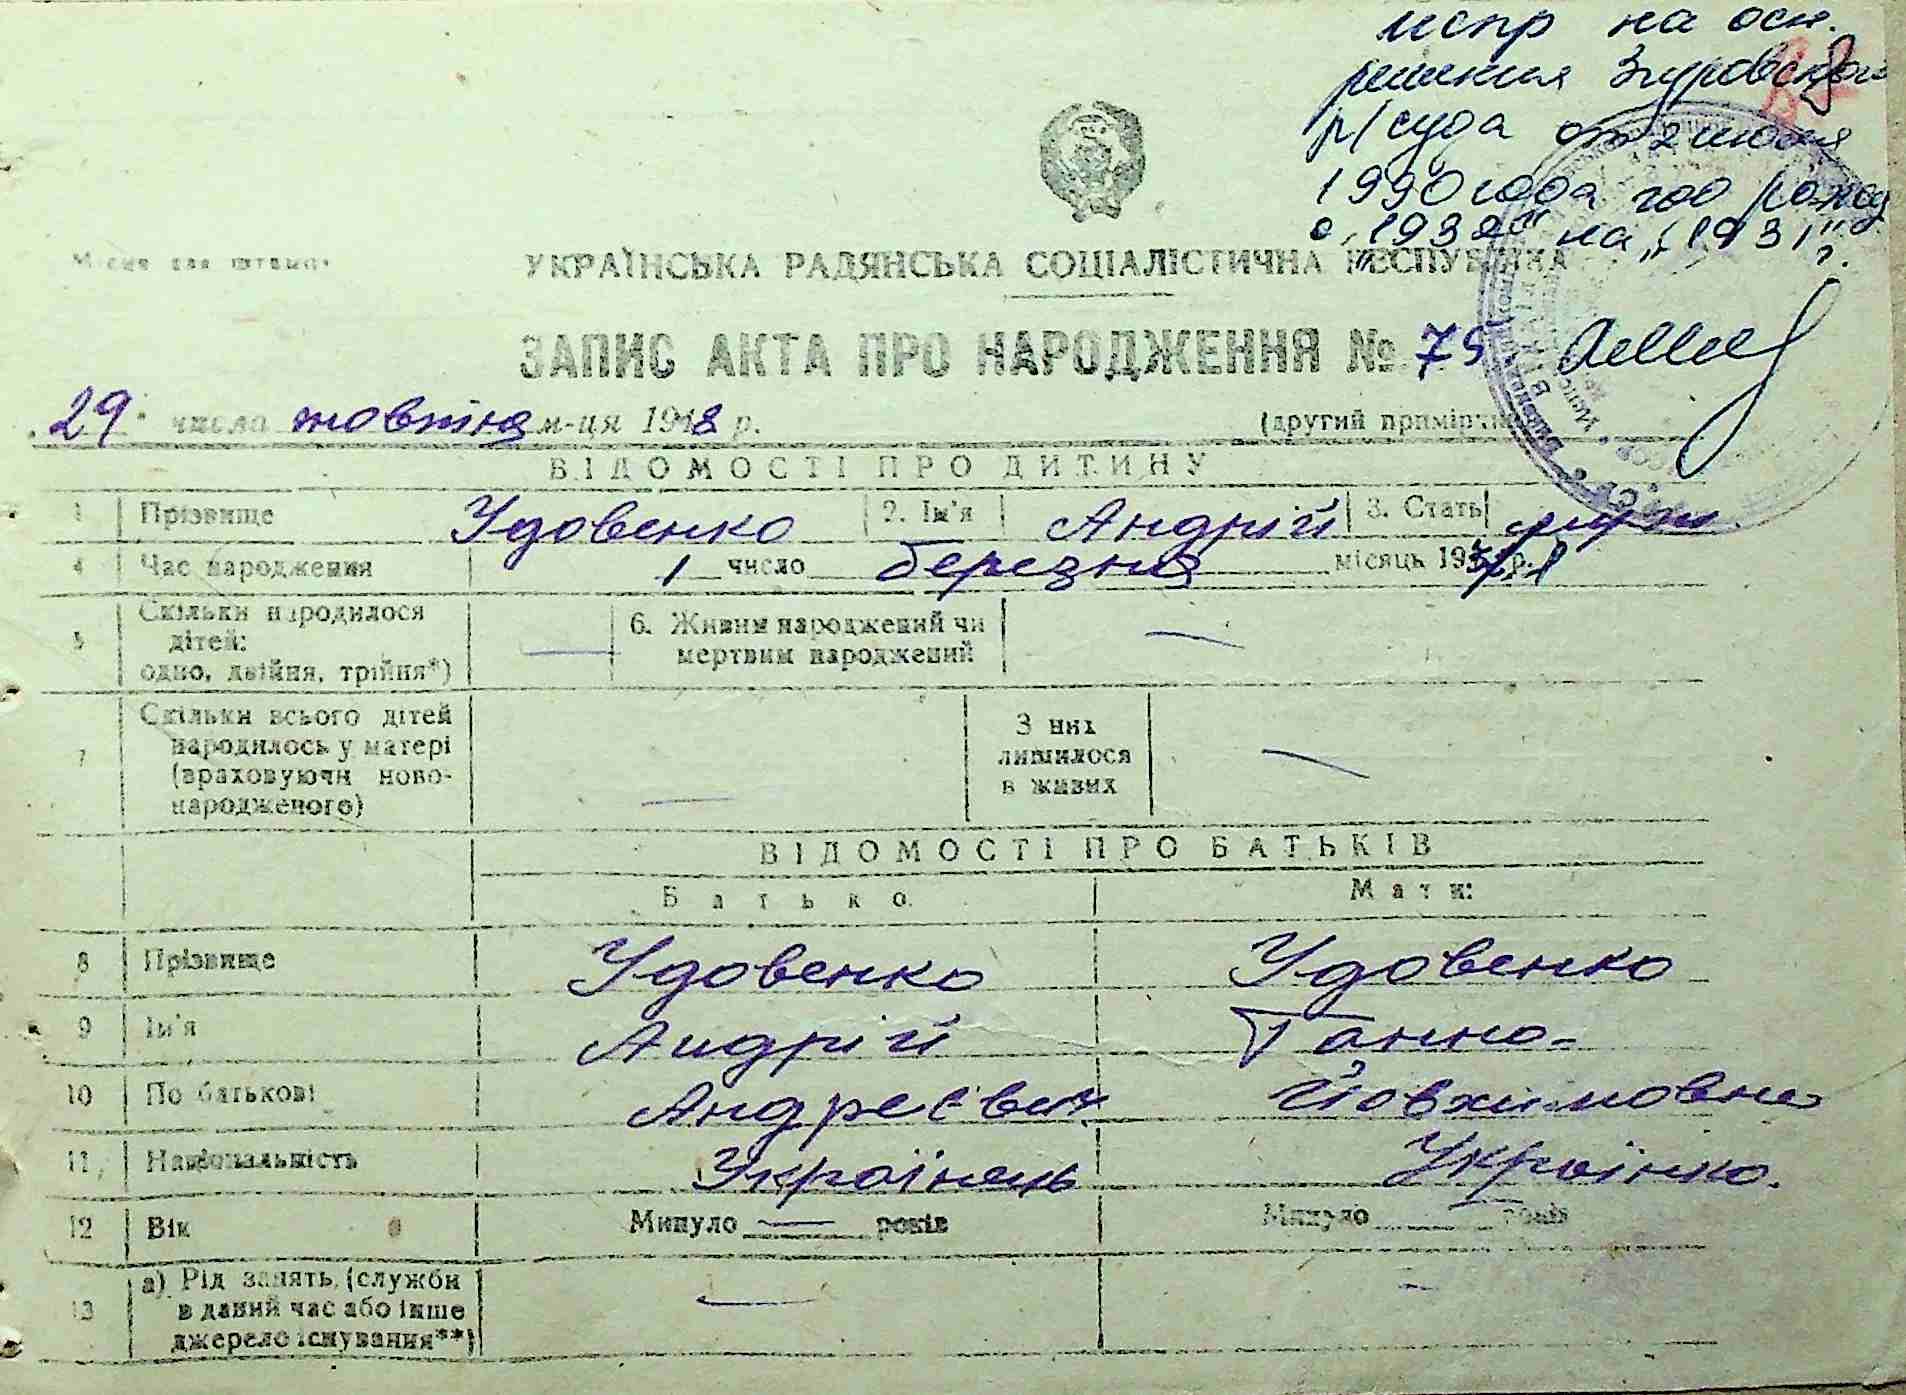 испр на осн.
решения Згуровского
р/суда от 2 июля
1990 года год рожд
с "1932" на "1931".
Місце для штампа
УКРАЇНСЬКА РАДЯНСЬКА СОЦІАЛІСТИЧНА РЕСПУБЛІКА
ЗАПИС АКТА ПРО НАРОДЖЕННЯ № 75
29 числа жовтня м-ця 1948 р. (другий примірник)
ВІДОМОСТІ ПРО ДИТИНУ
1 Прізвище Удовенко 2. Ім'я Андрій 3. Стать
4 Час народження 1 число березня місяць 193 р.
5 Скільки народилося
дітей:
одно, двійня, трійня*) — 6. Живим народжений чи
мертвим народжений —
7 Скільки всього дітей
народилось у матері
(враховуючи ново-
народженого) — З них
лишилося
в живих —
ВІДОМОСТІ ПРО БАТЬКІВ
Батько Мати:
8 Прізвище Удовенко Удовенко
9 Ім'я Андрій Ганна
10 По батькові Андреєвич Йовхимовна
11 Національність Українець Українка.
12 Вік Минуло — років Минуло — років
13 а) Рід занять (служби
в даний час або інше
джерело існування**) — —